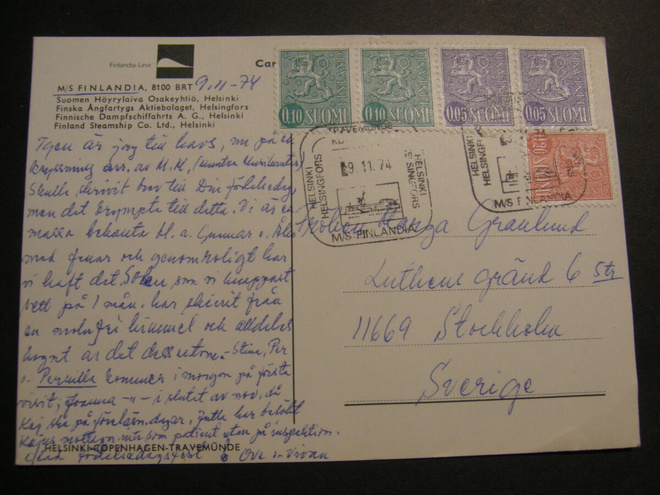 Finlandia-Line
Car
M/S FINLANDIA, 8100 BRT 9.11-74
Suomen Höyrylaiva Osakeyhtiö, Helsinki
Finska Ångfartygs Aktiebolaget, Helsingfors
Finnische Dampfschiffahrts A. G., Helsinki
Finland Steamship Co. Ltd., Helsinki
0.10 SUOMI
0.10 SUOMI
0.05 SUOMI
0.05 SUOMI
0.20 SUOMI
TRAVEMÜNDE
HELSINKI
HELSINGFORS
9.11.74
HELSINKI
HELSINGFORS
M/S FINLANDIA
HELSINKI
HELSINGFORS
M/S FINLANDIA
är jag till havs, nu på en
kryssning arr. av M.M.
Skulle skrivit brev till Din födelsedag
men det krympte till detta. Vi är en
massa bekanta bl.a. Gunnar o.
med fruar och genomroligt har
vi haft det. Solen, som vi knappast
sett på 1 mån. har skinit från
en molnfri himmel och alldeles
lugnt är det dessutom. Stina, Per
o. Pernilla kommer i morgon på första
visit, Joanna -"- i slutet av nov, då
Kaj ska på
som patient utan på inspektion.
födelsedagsfest Ove o. Vivan
Granlund
Luthens gränd 6 5tr
11669 Stockholm
Sverige
HELSINKI-COPENHAGEN-TRAVEMÜNDE